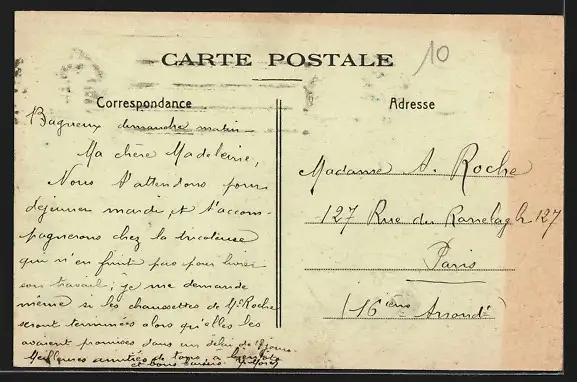 10
CARTE POSTALE
Correspondance
Adresse
Bagneux dimanche matin
Ma chère Madeleine,
Nous t'attendons pour
déjeuner mardi et t'accom-
pagnerons chez la tricoteuse
qui n'en finit pas pour livrer
son travail ; je me demande
même si les chaussettes de Mr Roche
seront terminées alors qu'elles les
avaient promises dans un délai de 8 jours
Meilleures amitiés de tous, à
et bons baisers
Madame A. Roche
127 Rue du Ranelagh 127
Paris
(16ème Arrondt